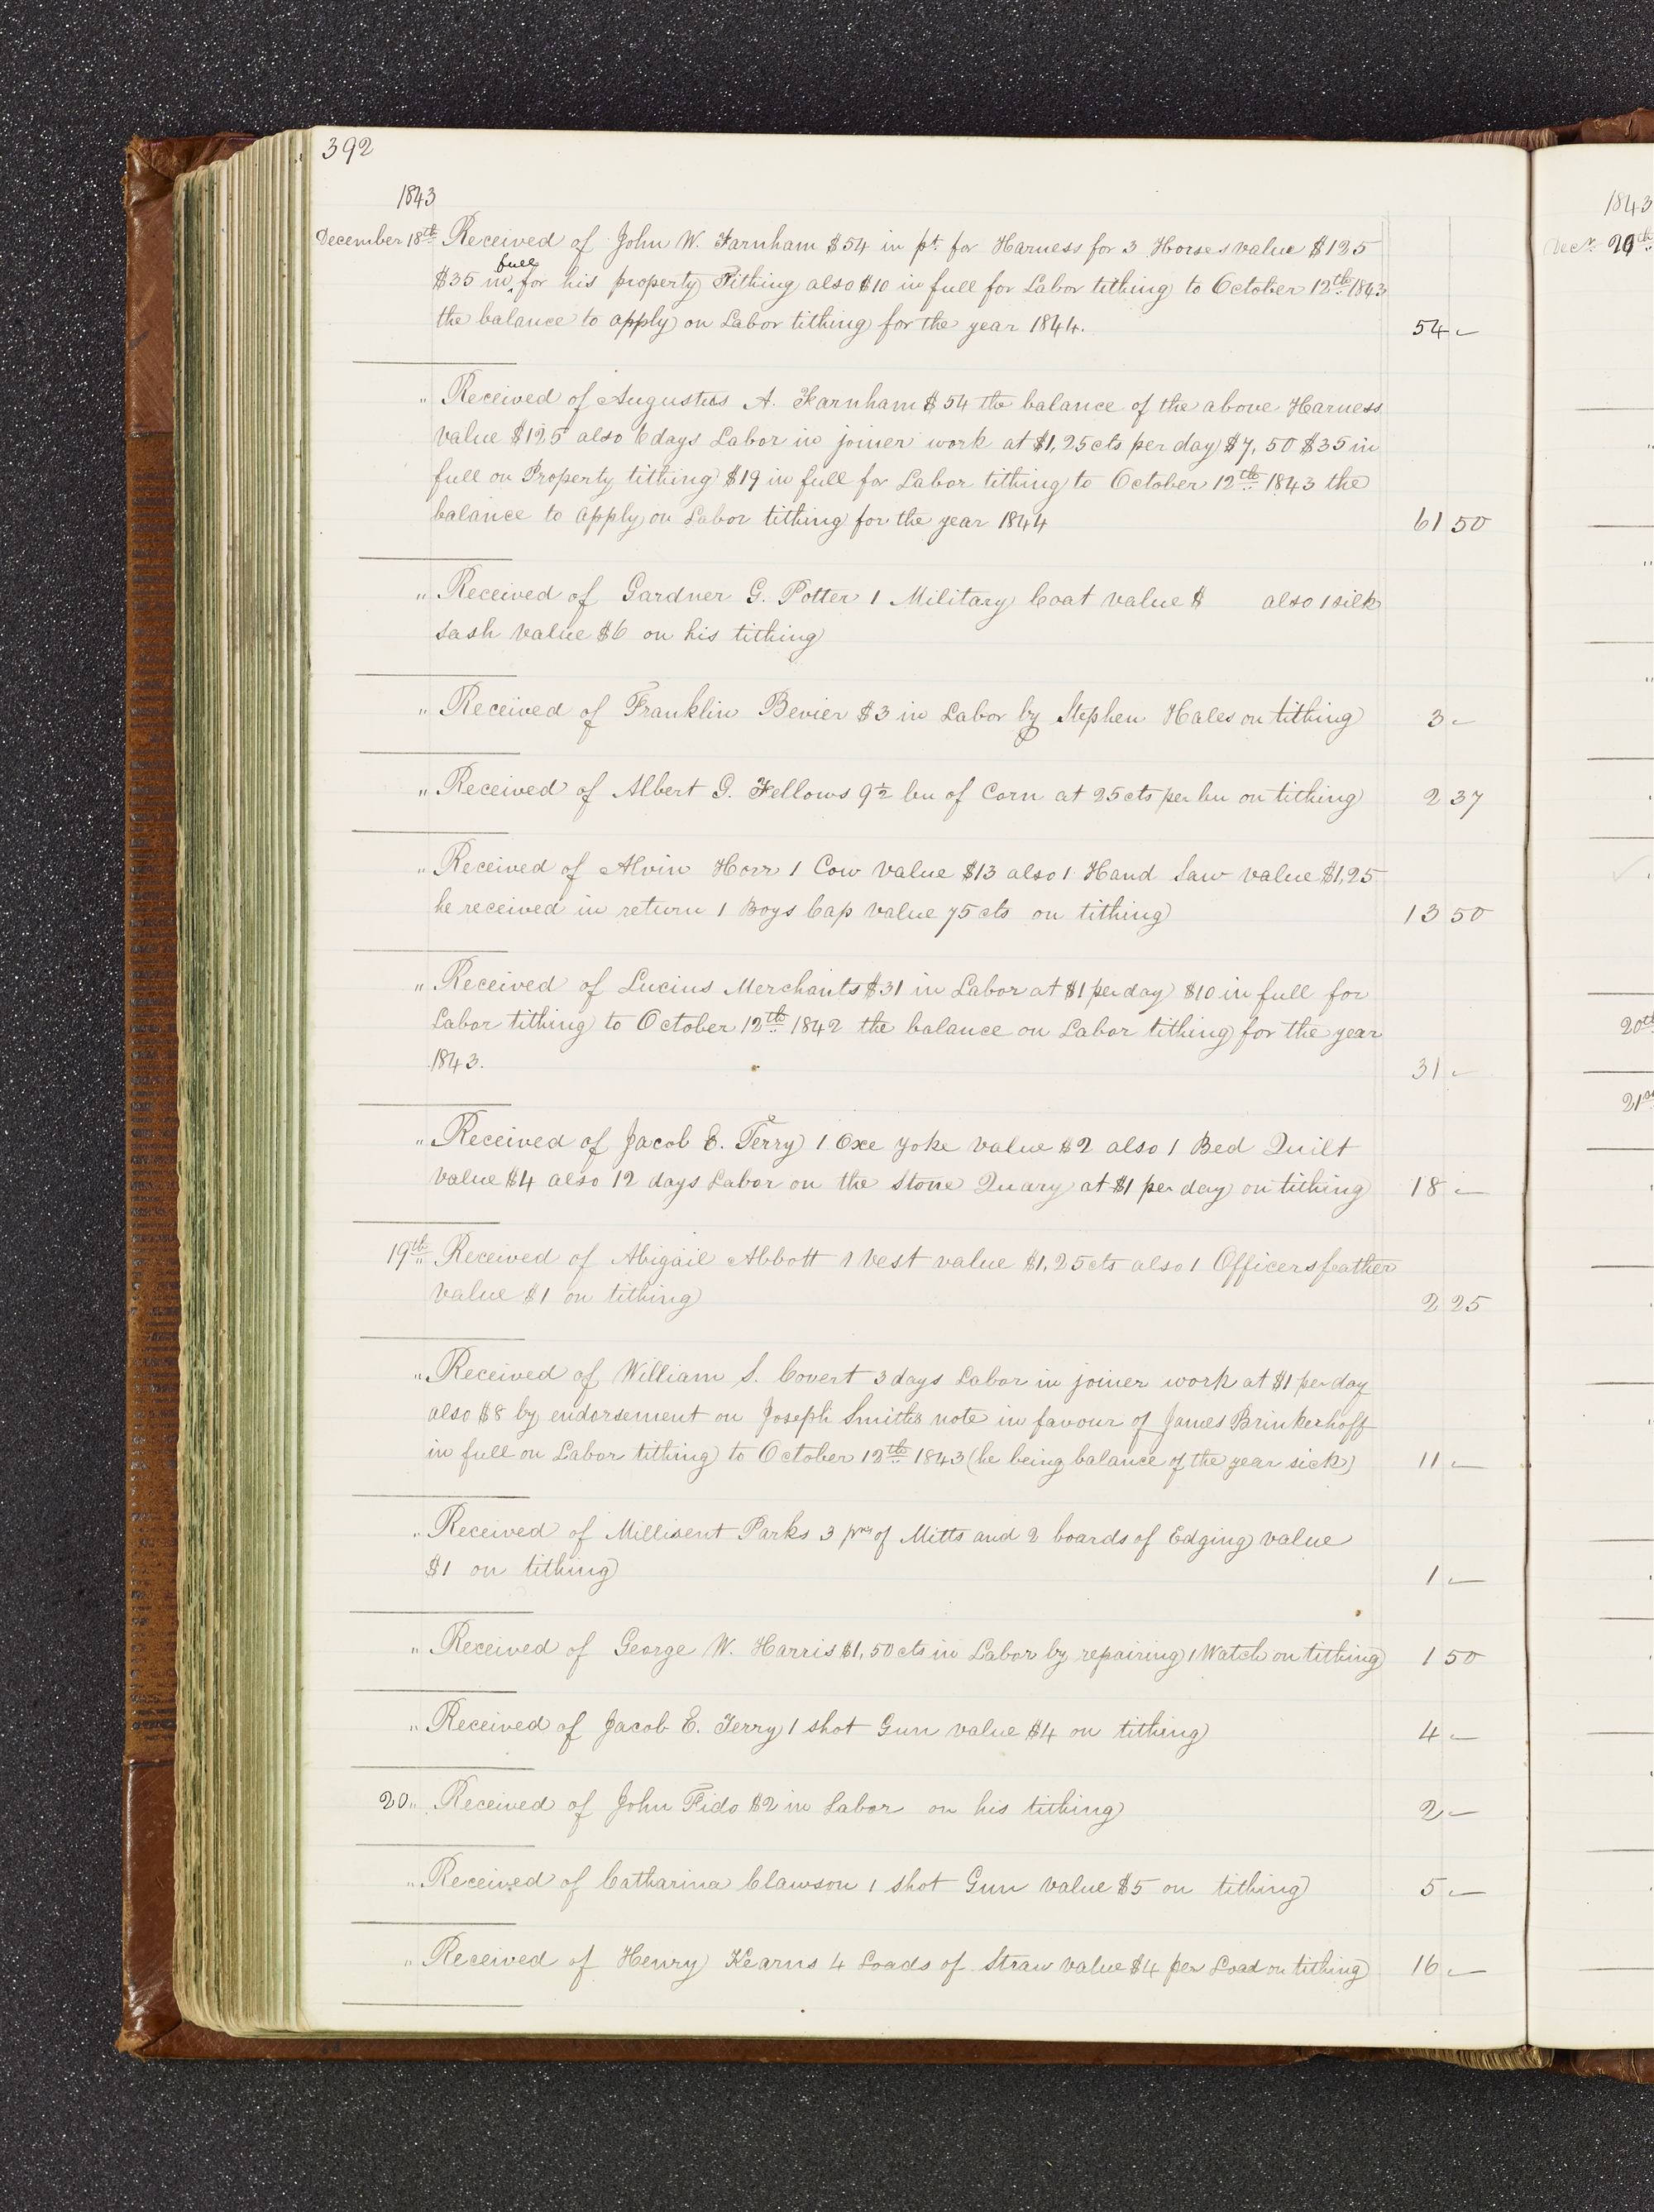 392
1843
December 18th Received of John W. Farnham $54 in pt. for Harness for 3 Horses value $125
full
$35 in ‸ for his property Tithing also $10 in full for Labor tithing to October 12th 1843
the balance to apply on Labor tithing for the year 1844. 54 –
" Received of Augustus A. Farnham $54 the balance of the above Harness
value $125 also 6 days Labor in joiner work at $1,25 cts per day $7,50 $35 in
full on Property tithing $19 in full for Labor tithing to October 12th 1843 the
balance to apply on Labor tithing for the year 1844 61 50
" Received of Gardner G. Potter 1 Military Coat value $ also 1 silk
Sash value $6 on his tithing
" Received of Franklin Bevier $3 in Labor by Stephen Hales on tithing 3 –
" Received of Albert G. Fellows 9½ bu of Corn at 25 cts per bu on tithing 2 37
" Received of Alvin Horr 1 Cow value $13 also 1 Hand Saw value $1,25
he received in return 1 Boys Cap value 75 cts on tithing 13 50
" Received of Lucius Merchants $31 in Labor at $1 per day $10 in full for
Labor tithing to October 12th 1842 the balance on Labor tithing for the year
1843. 31 –
" Received of Jacob E. Terry 1 Oxe yoke value $2 also 1 Bed Quilt
value $4 also 12 days Labor on the Stone Quary at $1 per day on tithing 18 –
19th " Received of Abigail Abbott 1 vest value $1,25 cts also 1 Officers feather
value $1 on tithing 2 25
" Received of William S. Covert 3 days Labor in joiner work at $1 per day
also $8 by endorsement on Joseph Smiths note in favour of James Brinkerhoff
in full on Labor tithing to October 12th 1843 (he being balance of the year sick) 11 –
" Received of Millisent Parks 3 prs of Mitts and 2 boards of Edging value
$1 on tithing 1 –
" Received of George W. Harris $1,50 cts in Labor by repairing 1 Watch on tithing 1 50
" Received of Jacob E. Terry 1 shot Gun value $4 on tithing 4 –
20 " Received of John Fido $2 in Labor on his tithing 2 –
" Received of Catharina Clawson 1 shot Gun value $5 on tithing 5 –
" Received of Henry Kearns 4 Loads of Straw value $4 per Load on tithing 16 –
1843
Decr. 20th
20th
21st